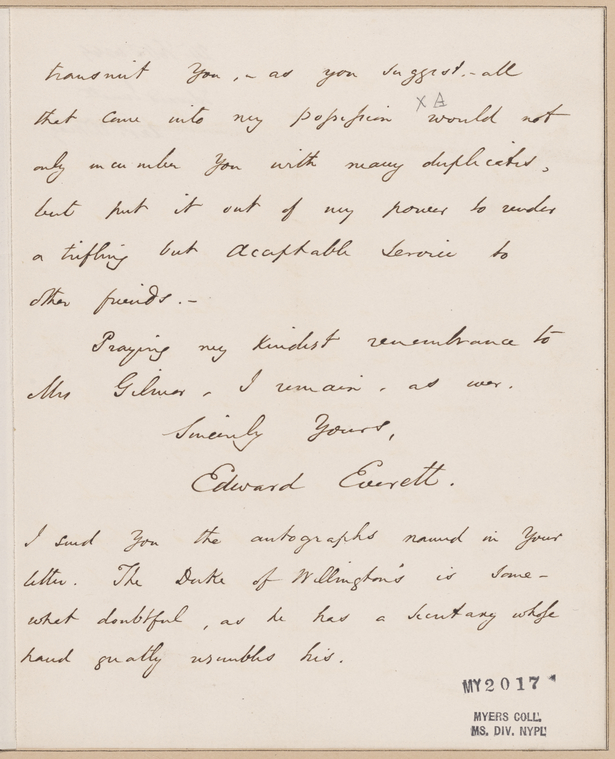 transmit You, - as you suggest. - all
X A
that come into my possession would not
only incumber You with many duplicates,
but put it out of my power to render
a trifling but acceptable service to
other friends. -
Praying my kindest remembrance to
Mrs Gilmor, I remain, as ever,
Sincerely Yours,
Edward Everett.
I send You the autographs named in Your
letter. The Duke of Wellington's is some-
what doubtful, as he has a secretary whose
hand greatly resembles his.
MY 2017
MYERS COLL.
MS. DIV. NYPL